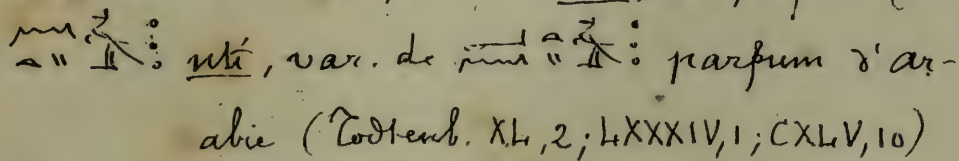 nti, var. de parfum d'ar-
abie (Todtenb. XL, 2; LXXXIV, 1; CXLV, 10)